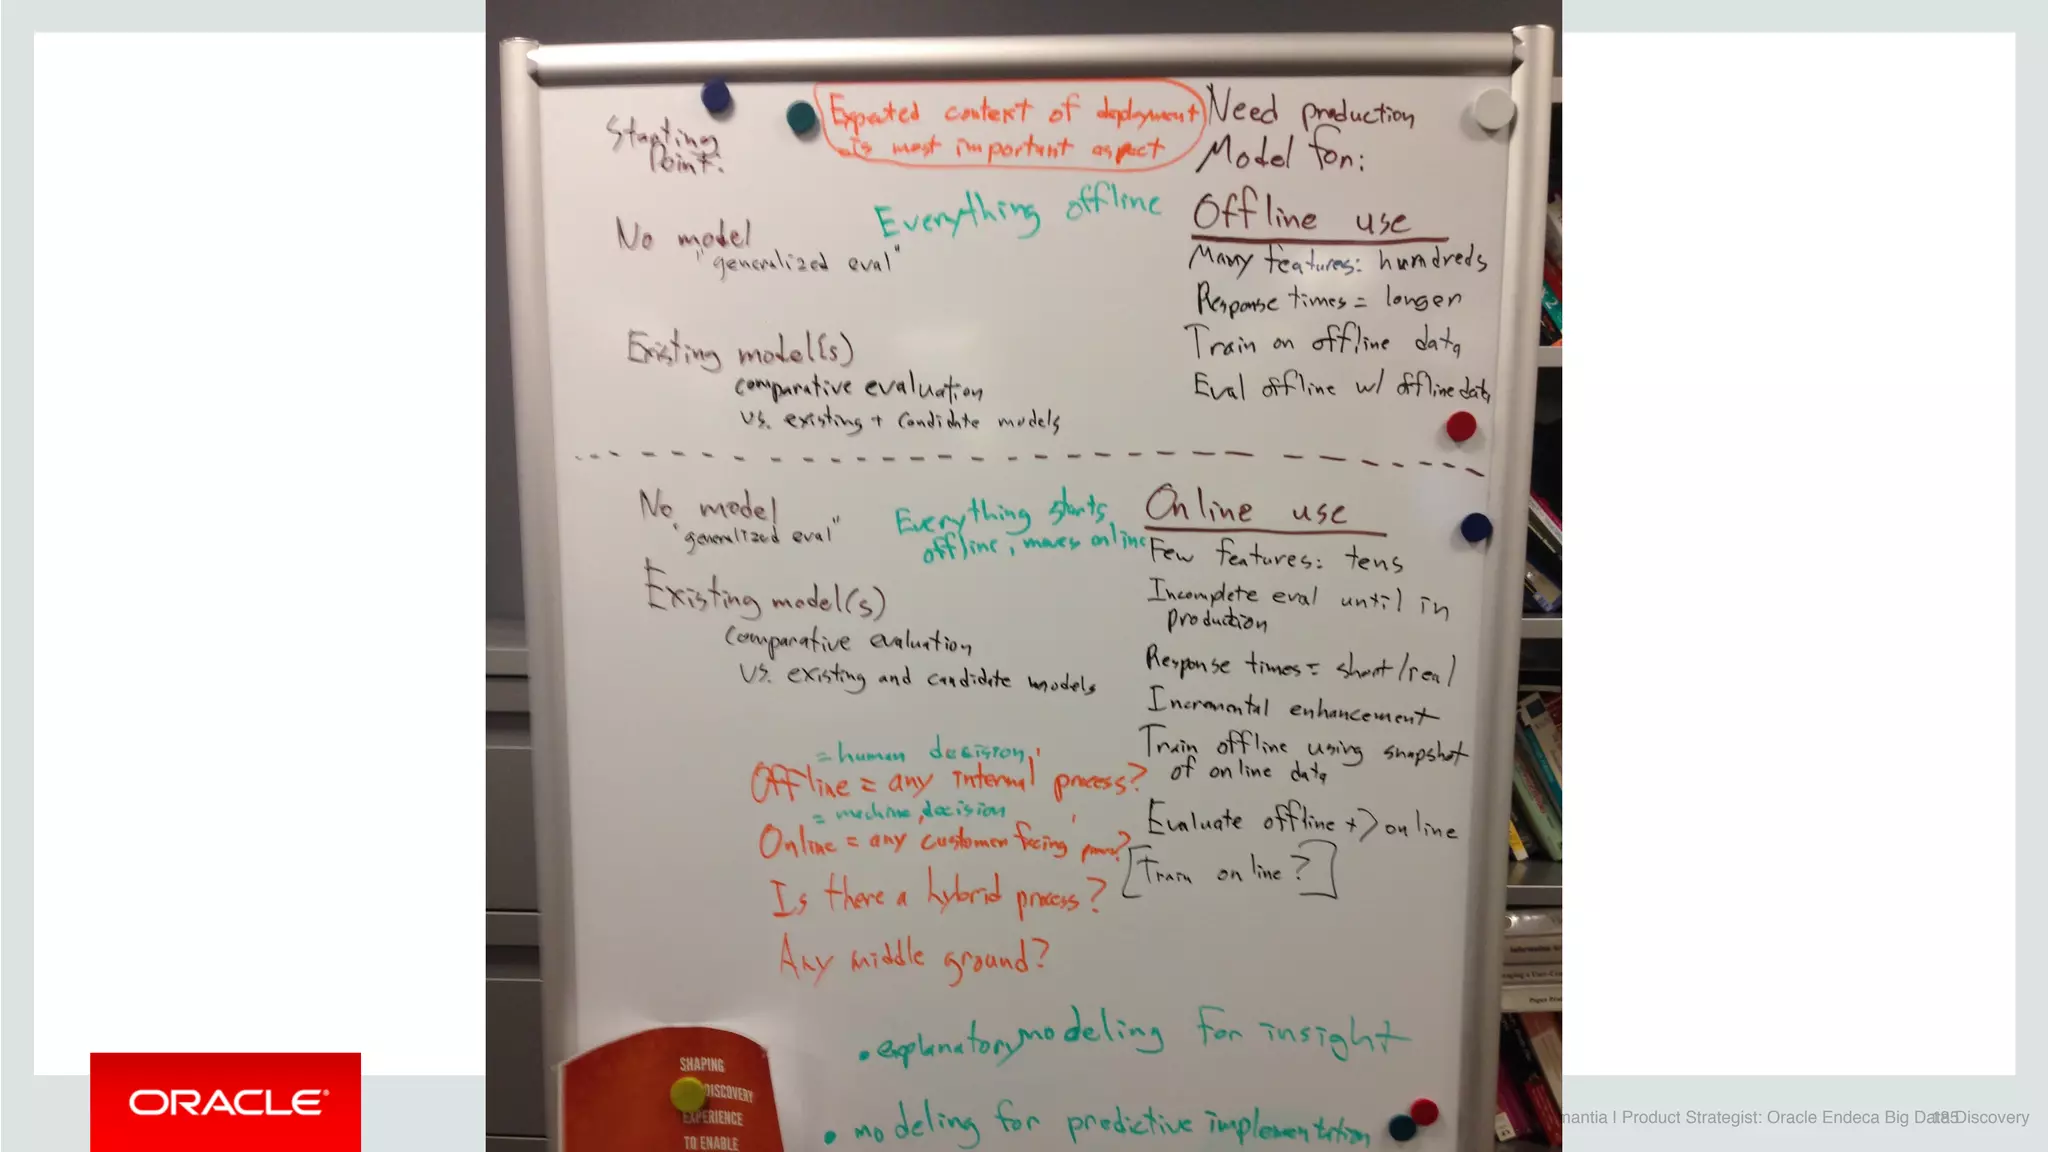 Starting
Point:
Expected context of deployment
is most important aspect
Need production
Model for:
Everything offline
Offline use
No model
"generalized eval"
Many features: hundreds
Response times = longer
Existing model(s)
comparative evaluation
vs. existing + candidate models
Train on offline data
Eval offline w/ offline data
No model
"generalized eval"
Everything starts
offline, moves online
Online use
Few features: tens
Existing model(s)
comparative evaluation
vs. existing and candidate models
Incomplete eval until in
production
Response times = short/real
Incremental enhancement
Train offline using snapshot
of online data
Evaluate offline +> online
[Train online?]
= human decision
Offline = any internal process?
= machine decision
Online = any customer facing
Is there a hybrid process?
Any middle ground?
• explanatory modeling for insight
• modeling for predictive implementation
SHAPING
DISCOVERY
EXPERIENCE
TO ENABLE
ORACLE
mantia | Product Strategist: Oracle Endeca Big Data Discovery
185